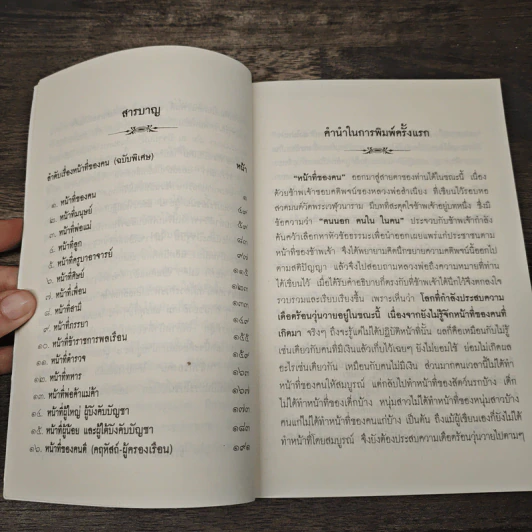 สารบาญ
ลำดับเรื่องหน้าที่ของคน (ฉบับพิเศษ) หน้า
๑. หน้าที่ของคน ๑
๒. หน้าที่มนุษย์
๓. หน้าที่พ่อแม่
๔. หน้าที่ลูก ๘๓
๕. หน้าที่ครูบาอาจารย์ ๙๗
๖. หน้าที่ศิษย์ ๑๑๕
๗. หน้าที่เพื่อน
๘. หน้าที่สามี
๙. หน้าที่ภรรยา
๑๐. หน้าที่ข้าราชการพลเรือน ๑๕๕
๑๑. หน้าที่ตำรวจ ๑๕๙
๑๒. หน้าที่ทหาร ๑๖๓
๑๓. หน้าที่พ่อค้าแม่ค้า ๑๖๗
๑๔. หน้าที่ผู้ใหญ่ ผู้บังคับบัญชา ๑๗๓
๑๕. หน้าที่ผู้น้อย และผู้ใต้บังคับบัญชา ๑๘๓
๑๖. หน้าที่ของคนดี (คฤหัสถ์-ผู้ครองเรือน) ๑๙๑
คำนำในการพิมพ์ครั้งแรก
"หน้าที่ของคน" ออกมาสู่สายตาของท่านได้ในขณะนี้ เนื่อง
ด้วยข้าพเจ้าชอบคติพจน์ของหลวงพ่อสำเนียง ที่เขียนไว้รอบหอ
สวดมนต์วัดพระเวฬุวนาราม มีบทที่สะดุดใจข้าพเจ้าอยู่บทหนึ่ง ซึ่งมี
ข้อความว่า "คนนอก คนใน ในคน" ประจวบกับข้าพเจ้ากำลัง
ค้นคว้าเลือกหาหัวข้อธรรมะเพื่อนำออกเผยแพร่แก่ประชาชนตาม
หน้าที่ของข้าพเจ้า จึงได้พยายามคิดนึกขยายความคติพจน์นี้ออกไป
ตามสติปัญญา แล้วจึงไปสอบถามหลวงพ่อถึงความหมายที่ท่าน
ได้เขียนไว้ เมื่อได้รับคำอธิบายก็ตรงกับที่ข้าพเจ้าได้นึกไว้จึงตกลงใจ
รวบรวมและเรียบเรียงขึ้น เพราะเห็นว่า โลกที่กำลังประสบความ
เดือดร้อนวุ่นวายอยู่ในขณะนี้ เนื่องจากยังไม่รู้จักหน้าที่ของคนที่
เกิดมา จริงๆ ถึงจะรู้แต่ไม่ได้ปฏิบัติหน้าที่นั้น ผลก็คือเหมือนกับไม่รู้
เช่นเดียวกับคนที่มีเงินแล้วเก็บไว้เฉยๆ ยังไม่ยอมใช้ ย่อมไม่เกิดผล
อะไรเช่นเดียวกัน เหมือนกับคนไม่มีเงิน ส่วนมากคนเวลานี้ไม่ได้ทำ
หน้าที่ของคนให้สมบูรณ์ แต่กลับไปทำหน้าที่ของสัตว์นรกบ้าง เด็ก
ไม่ได้ทำหน้าที่ของเด็กบ้าง หนุ่มสาวไม่ได้ทำหน้าที่ของหนุ่มสาวบ้าง
คนแก่ไม่ได้ทำหน้าที่ของคนแก่บ้าง เป็นต้น ถึงแม้ผู้เขียนเองก็ยังไม่ได้
ทำหน้าที่โดยสมบูรณ์ จึงยังต้องประสบความเดือดร้อนวุ่นวายไปตามๆ